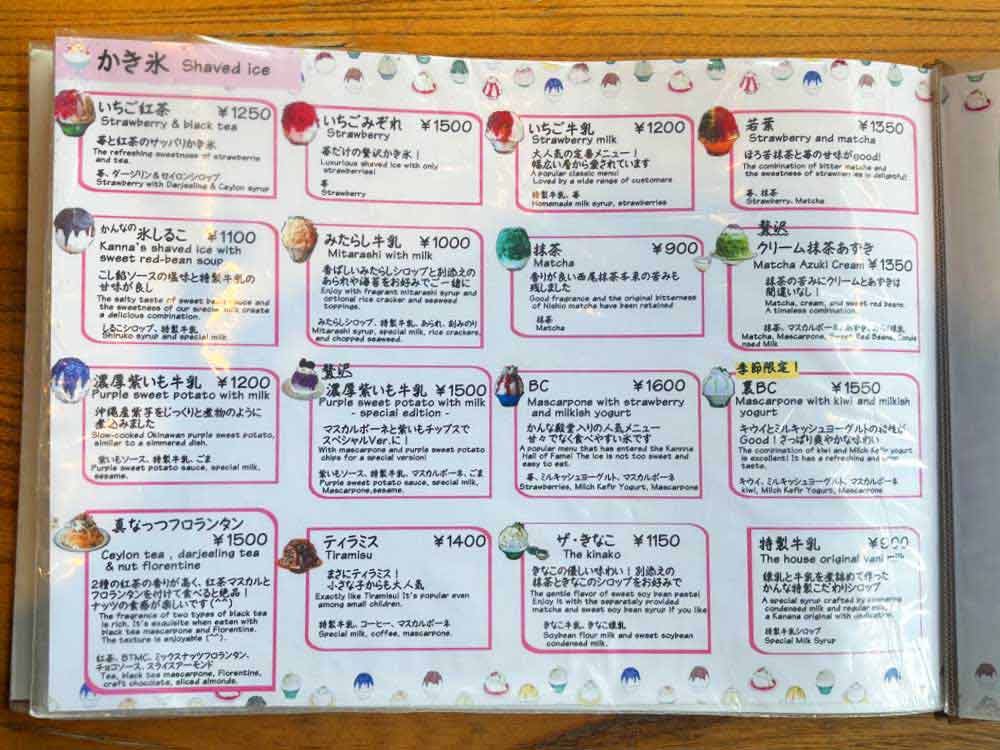 かき氷 Shaved ice
いちご紅茶 ¥1250
Strawberry & black tea
苺と紅茶のサッパリかき氷
The refreshing sweetness of strawberrie
and tea.
苺、ダージリン&セイロンシロップ
Strawberry with Darjeeling & Ceylon syrup
いちごみぞれ ¥1500
Strawberry
苺だけの贅沢かき氷!
Luxurious shaved ice with only
strawberries!
苺
Strawberry
いちご牛乳 ¥1200
Strawberry milk
大人気の定番メニュー!
幅広い層から愛されています
A popular classic menu!
Loved by a wide range of customers
特製牛乳、苺
Homemade milk syrup, strawberries
若葉 ¥1350
Strawberry and matcha
ほろ苦抹茶と苺の甘味がgood!
The combination of bitter matcha and
the sweetness of strawberries is delightful!
苺、抹茶
Strawberry, Matcha
かんなの氷しるこ ¥1100
Kanna's shaved ice with
sweet red-bean soup
こし餡ソースの塩味と特製牛乳の
甘味が良し
The salty taste of sweet bean sauce and
the sweetness of our special milk create
a delicious combination.
しるこシロップ、特製牛乳
Shiruko syrup and special milk
みたらし牛乳 ¥1000
Mitarashi with milk
香ばしいみたらしシロップと別添えの
あられや海苔をお好みでご一緒に
Enjoy with fragrant mitarashi syrup and
ortional rice cracker and seaweed
toppings.
みたらしシロップ、特製牛乳、あられ、刻みのり
Mitarashi syrup, special milk, rice crackers,
and chopped seaweed.
抹茶 ¥900
Matcha
香りが良い西尾抹茶本来の苦みも
残しました
Good fragrance and the original bitterness
of Nishio matcha have been retained
抹茶
Matcha
贅沢
クリーム抹茶あずき
Matcha Azuki Cream ¥1350
抹茶の苦みにクリームとあずきは
間違いなし!
Matcha, cream, and sweet red beans.
A timeless combination.
抹茶、マスカルポーネ、あずき、
Matcha, Mascarpone, Sweet Red Beans, Conde
nsed Milk
濃厚紫いも牛乳 ¥1200
Purple sweet potato with milk
沖縄産紫芋をじっくりと煮物のように
煮込みました
Slow-cooked Okinawan purple sweet potato,
similar to a simmered dish.
紫いもソース、特製牛乳、ごま
Purple sweet potato sauce, special milk,
sesame.
贅沢
濃厚紫いも牛乳 ¥1500
Purple sweet potato with milk
- special edition -
マスカルポーネと紫いもチップスで
スペシャルVer.に!
With mascarpone and purple sweet potato
chips for a special version!
紫いもソース、特製牛乳、マスカルポーネ、ごま
Purple sweet potato sauce, special milk,
Mascarpone,sesame.
BC ¥1600
Mascarpone with strawberry
and milkish yogurt
かんな殿堂入りの人気メニュー
甘々でなく食べやすい氷です
A popular menu that has entered the Kannna
Hall of Fame! The ice is not too sweet and
easy to eat.
苺、ミルキッシュヨーグルト、マスカルポーネ
Strawberries, Milch Kefir Yogurt, Mascarpone
季節限定!
裏BC ¥1550
Mascarpone with kiwi and milkish
yogurt
キウイとミルキッシュヨーグルトの相性が
Good!さっぱり爽やかな味わい
The conpination of kiwi and Milch Kefir yogurt
is excellent! It has a refreshing and
taste.
キウイ、ミルキッシュヨーグルト、マスカルポーネ
kiwi, Milch Kefir Yogurt, Mascarpone
真なっつフロランタン
¥1500
Ceylon tea , darjeeling tea
& nut florentine
2種の紅茶の香りが高く、紅茶マスカルと
フロランタンを付けて食べると絶品!
ナッツの食感が楽しいです(^^)
The fragrance of two types of black tea
is rich. It's exquisite when eaten with
black tea mascarpone and Florentine.
The texture is enjoyable (^^).
紅茶、BTMC、ミックスナッツフロランタン、
チョコソース、スライスアーモンド
Tea, black tea mascarpone, Florentine,
craft chocolate, sliced almonds.
ティラミス ¥1400
Tiramisu
まさにティラミス!
小さな子からも大人気
Exactly like Tiramisu! It's popular even
among small children.
特製牛乳、コーヒー、マスカルポーネ
Special milk, coffee, mascarpone.
ザ・きなこ ¥1150
The kinako
きなこの優しい味わい!別添えの
抹茶ときなこのシロップをお好みで
The gentle flavor of sweet soy bean paste!
Enjoy it with the separately provided
matcha and sweet soy bean syrup if you like
きなこ牛乳、きなこ練乳
Soybean flour milk and sweet soybean
condensed milk.
特製牛乳 ¥900
The house original vani milk
練乳と牛乳を煮詰めて作った
かんな特製こだわりシロップ
A special syrup crafted by combining
condensed milk and regular milk,
a Kanana original with dedication.
特製牛乳シロップ
Special Milk Syrup